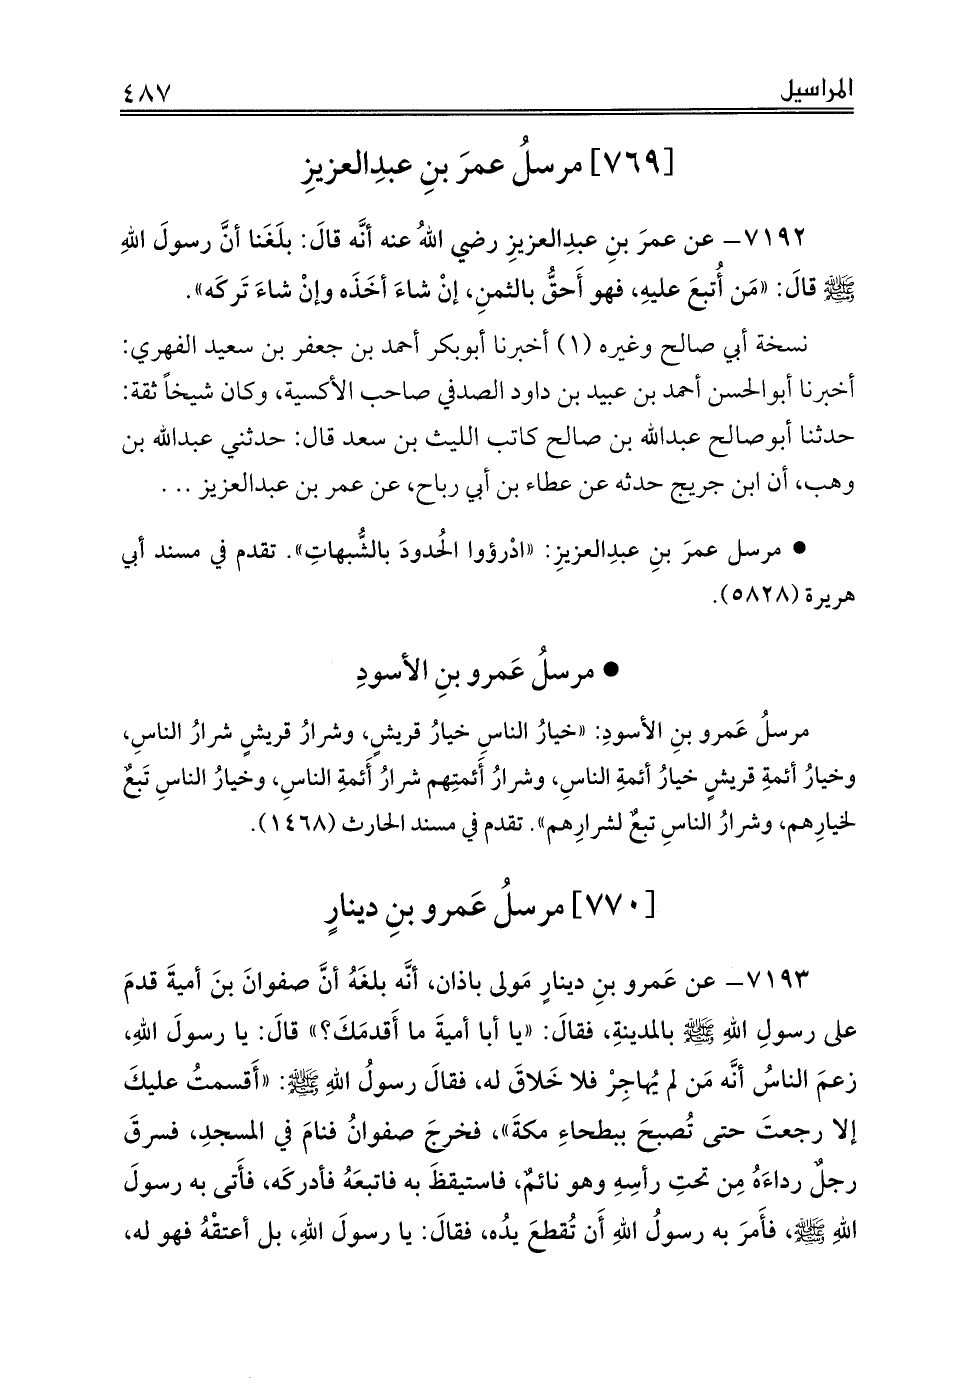 المراسيل ٤٨٧
[٧٦٩] مرسلُ عمرَ بنِ عبدِالعزيزِ
٧١٩٢- عن عمرَ بنِ عبدِالعزيزِ رضي اللهُ عنه أنَّه قالَ: بلَغَنا أنَّ رسولَ اللهِ
ﷺ قالَ: «مَن أُتبعَ عليهِ، فهو أَحقُّ بالثمنِ، إنْ شاءَ أخَذَه وإنْ شاءَ تَركَه».
نسخة أبي صالح وغيره (١) أخبرنا أبوبكر أحمد بن جعفر بن سعيد الفهري:
أخبرنا أبوالحسن أحمد بن عبيد بن داود الصدفي صاحب الأكسية، وكان شيخاً ثقة:
حدثنا أبوصالح عبدالله بن صالح كاتب الليث بن سعد قال: حدثني عبدالله بن
وهب، أن ابن جريج حدثه عن عطاء بن أبي رباح، عن عمر بن عبدالعزيز ...
● مرسل عمرَ بنِ عبدِالعزيزِ: «ادْرؤوا الحُدودَ بالشُّبهاتِ». تقدم في مسند أبي
هريرة (٥٨٢٨).
● مرسلُ عَمرو بنِ الأسودِ
مرسلُ عَمرو بنِ الأسودِ: «خيارُ الناسِ خيارُ قريشٍ، وشرارُ قريشٍ شرارُ الناسِ،
وخيارُ أئمةِ قريشٍ خيارُ أئمةِ الناسِ، وشرارُ أَئمتِهم شرارُ أَئمةِ الناسِ، وخيارُ الناسِ تَبعٌ
لخيارِهم، وشرارُ الناسِ تبعٌ لشرارِهم». تقدم في مسند الحارث (١٤٦٨).
[٧٧٠] مرسلُ عَمرو بنِ دينارٍ
٧١٩٣- عن عَمرو بنِ دينارٍ مَولى باذان، أنَّه بلغَهُ أنَّ صفوانَ بنَ أميةَ قدمَ
على رسولِ اللهِ ﷺ بالمدينةِ، فقالَ: «يا أبا أميةَ ما أَقدمَكَ؟» قالَ: يا رسولَ اللهِ،
زعمَ الناسُ أنَّه مَن لم يُهاجِرْ فلا خَلاقَ له، فقالَ رسولُ اللهِ ﷺ: «أَقسمتُ عليكَ
إلا رجعتَ حتى تُصبحَ ببطحاءِ مكةَ»، فخرجَ صفوانُ فنامَ في المسجدِ، فسرقَ
رجلٌ رداءَهُ مِن تحتِ رأسِهِ وهو نائمٌ، فاستيقظَ به فاتبعَهُ فأدركَه، فأَتى به رسولَ
اللهِ ﷺ، فأَمرَ به رسولُ اللهِ أن تُقطعَ يدُه، فقالَ: يا رسولَ اللهِ، بل أعتقْهُ فهو له،